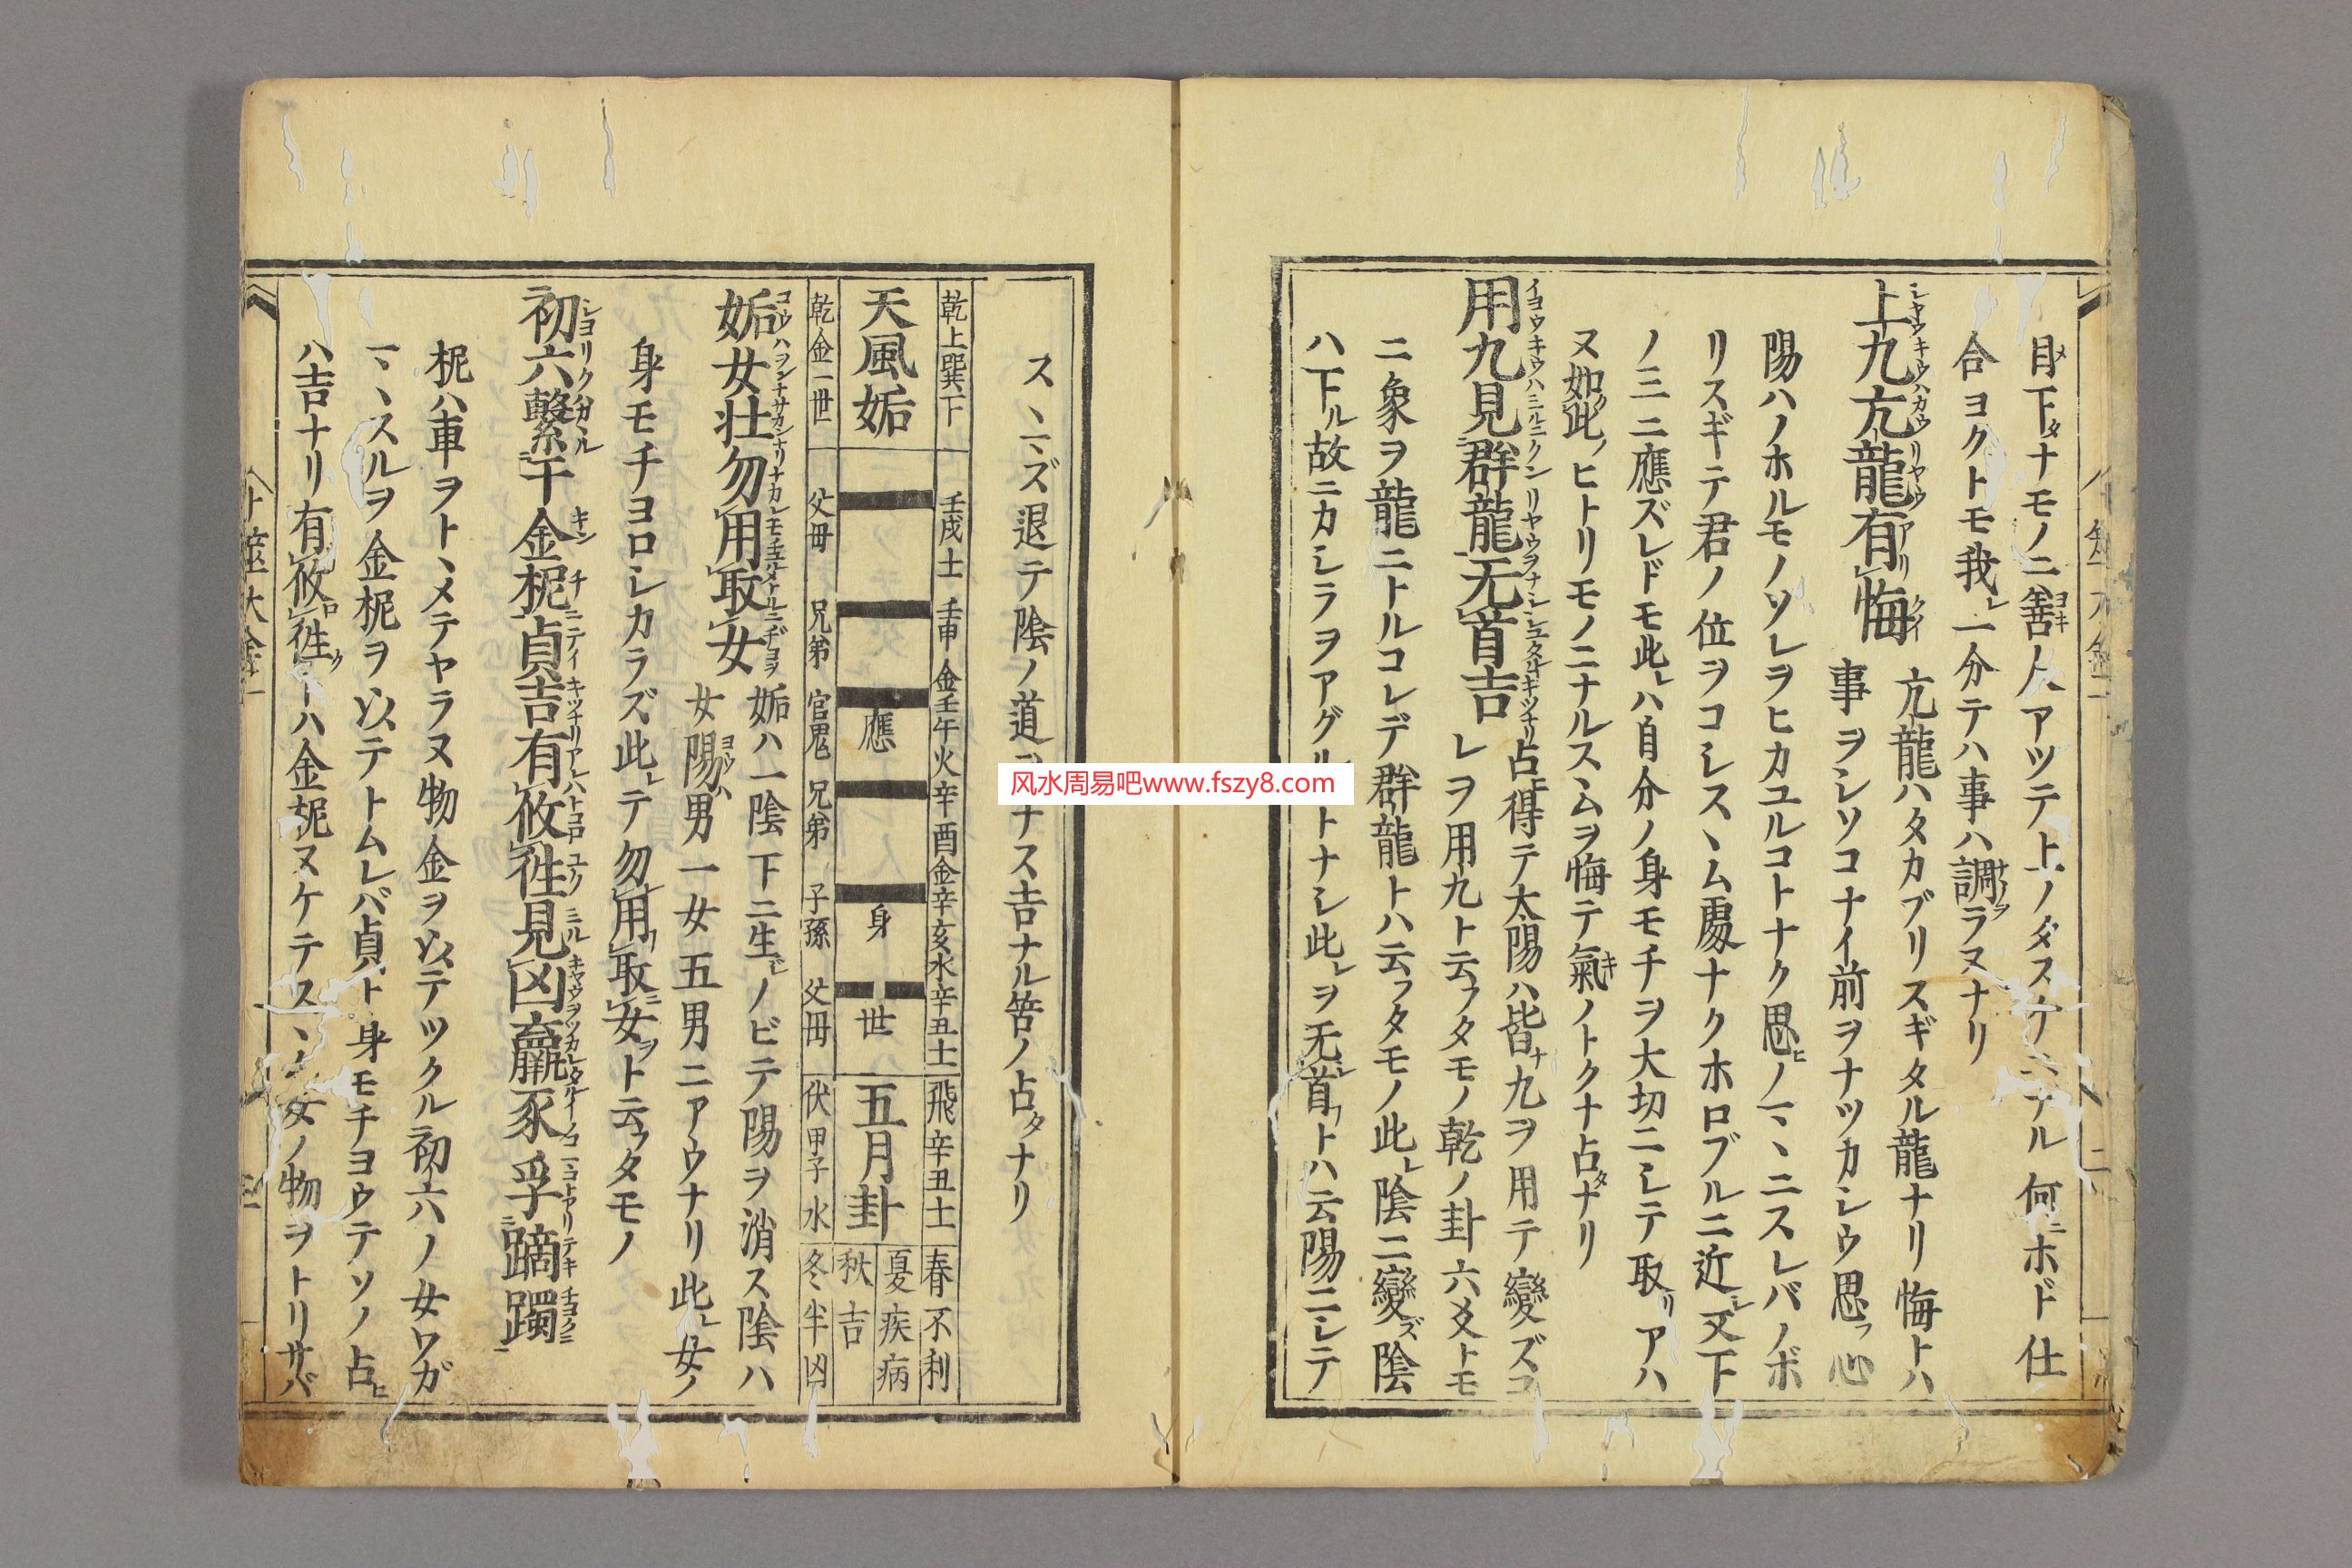 目下タナモノニ善人アツテ上ノタスケニアル何ホド仕
合ヨクトモ我レ一分テハ事ハ調ラヌナリ
上九亢龍有悔
亢龍ハタカブリスギタル龍ナリ悔トハ
事ヲシソコナイ前ヲナツカシウ思フ心
陽ハノホルモノソレヲヒカユルコトナク思ヒノマヽニスレバノボ
リスギテ君ノ位ヲコシスヽム處ナクホロブルニ近シ又下
ノ三ニ應ズレドモ此レハ自分ノ身モチヲ大切ニシテ取リアハ
ヌ如此ノヒトリモノニナルスヽムヲ悔テ氣ノトクナ占タナリ
用九見群龍无首吉
占得テ太陽ハ皆ナ九ヲ用テ變ズコ
レヲ用九ト云フタモノ乾ノ卦六爻トモ
ニ象ヲ龍ニトルコレデ群龍トハ云フタモノ此レ陰ニ變ズ陰
ハ下ル故ニカシラヲアグル トナシ此レヲ无首トハ云陽ニシテ
スヽマズ退テ陰ノ道 ナス吉ナル筈ノ占タナリ
乾上巽下
天風姤
乾金一世
壬戌土 壬申金 壬午火 辛酉金 辛亥水 辛丑土
應 身 世
父母 兄弟 官鬼 兄弟 子孫 父母
飛辛丑土
五月卦
伏甲子水
春不利
夏疾病
秋吉
冬半凶
姤女壮勿用取女
姤ハ一陰下ニ生シノビテ陽ヲ消ス陰ハ
女陽ハ男一女五男ニアウナリ此レ女ノ
身モチヨロシカラズ此レテ勿用取女ヲト云フタモノ
初六繫于金柅貞吉有攸往見凶羸豕孚蹢躅
柅ハ車ヲトヽメテヤラヌ物金ヲ以テツクル初六ノ女ワガ
マヽスルヲ金柅ヲ以テトムレバ貞ト身モチヨウテソノ占ヒ
ハ吉ナリ有攸往トハ金柅ヌケテスヽム女ノ物ヲトリサバ
风水周易吧www.fszy8.com